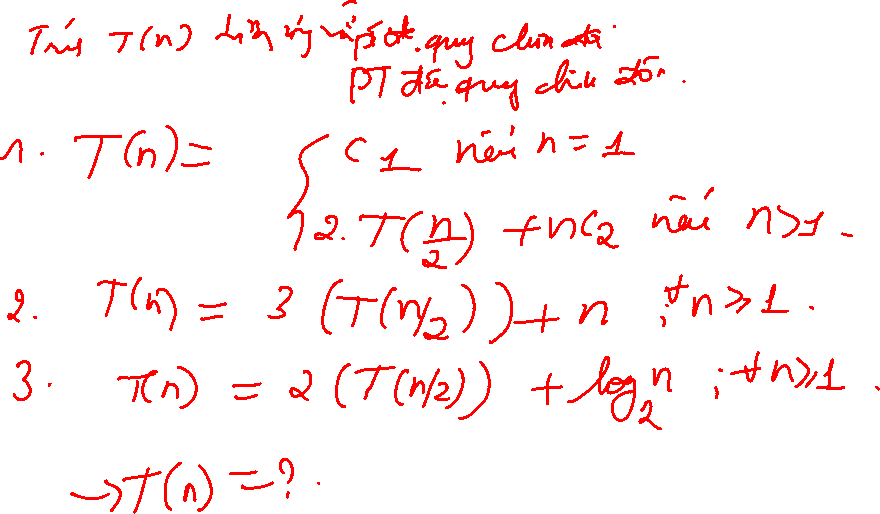 T(n)
đệ quy chia
PT đệ quy chia đôi.
1. T(n) = { C1 nếu n = 1
2.T(n/2) + nC2 nếu n>1.
2. T(n) = 3 (T(n/2)) + n ; ∀n ≥ 1.
3. T(n) = 2 (T(n/2)) + log₂n ; ∀n≥1.
→T(n) = ?.